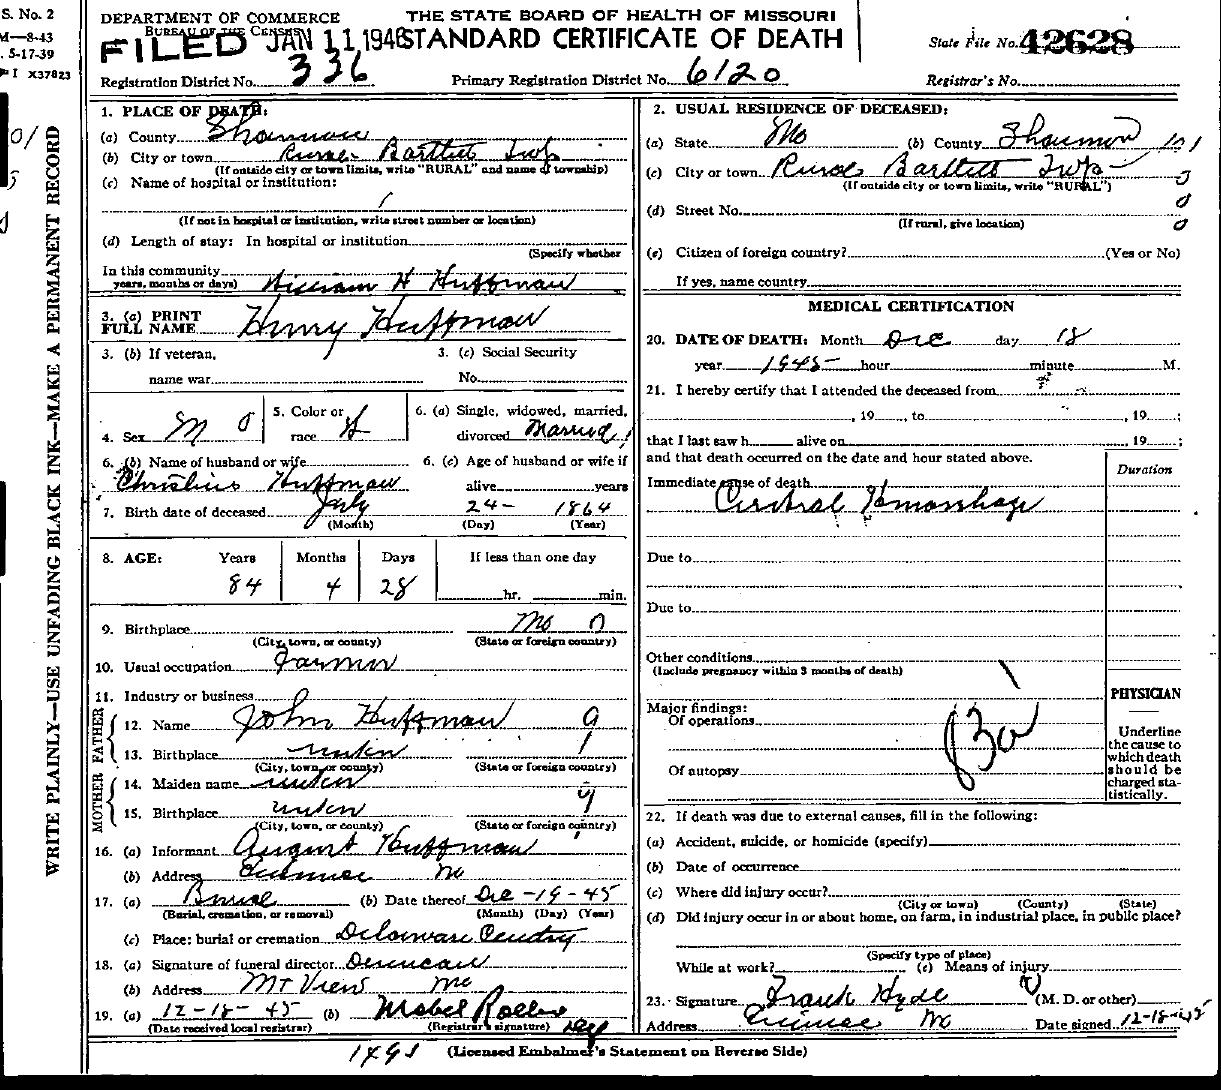 S. No. 2
M—8-43
. 5-17-39
I X37823
WRITE PLAINLY—USE UNFADING BLACK INK—MAKE A PERMANENT RECORD
DEPARTMENT OF COMMERCE
BUREAU OF THE CENSUS
FILED JAN 11, 1946
THE STATE BOARD OF HEALTH OF MISSOURI
STANDARD CERTIFICATE OF DEATH
State File No. 42628
Registration District No. 336
Primary Registration District No. 6120
Registrar's No.
1. PLACE OF DEATH:
(a) County Shannon
(b) City or town Rural Bartlett Twp
(If outside city or town limits, write "RURAL" and name of township)
(c) Name of hospital or institution:
(If not in hospital or institution, write street number or location)
(d) Length of stay: In hospital or institution
(Specify whether
In this community
years, months or days)
William H Huffman
3. (a) PRINT FULL NAME Henry Huffman
3. (b) If veteran, name war
3. (c) Social Security No.
4. Sex M 0
5. Color or race W
6. (a) Single, widowed, married, divorced Married 1
6. (b) Name of husband or wife
Huffman
6. (c) Age of husband or wife if alive years
7. Birth date of deceased July 24- 1864
(Month) (Day) (Year)
8. AGE: Years Months Days If less than one day
84 4 28 hr. min.
9. Birthplace Mo 0
(City, town, or county) (State or foreign country)
10. Usual occupation Farmer
11. Industry or business
FATHER
12. Name John Huffman 9
13. Birthplace unkn 1
(City, town, or county) (State or foreign country)
MOTHER
14. Maiden name unkn
15. Birthplace unkn 9
(City, town, or county) (State or foreign country)
16. (a) Informant August Huffman
(b) Address Mo
17. (a) Burial (b) Date thereof Dec-19-45
(Burial, cremation, or removal) (Month) (Day) (Year)
(c) Place: burial or cremation Delaware
18. (a) Signature of funeral director Duncan
(b) Address Mt View Mo
19. (a) 12-18-45 (b) Mabel
(Date received local registrar) (Registrar's signature)
2. USUAL RESIDENCE OF DECEASED:
(a) State Mo (b) County Shannon 101
(c) City or town Rural Bartlett Twp
(If outside city or town limits, write "RURAL")
(d) Street No.
(If rural, give location)
(e) Citizen of foreign country? (Yes or No)
If yes, name country
MEDICAL CERTIFICATION
20. DATE OF DEATH: Month Dec day 18
year 1945 hour minute M.
21. I hereby certify that I attended the deceased from
, 19 , to , 19 ;
that I last saw h alive on , 19 ;
and that death occurred on the date and hour stated above.
Duration
Immediate cause of death
Cerebral Hemorrhage
Due to
Due to
Other conditions
(Include pregnancy within 3 months of death)
Major findings:
Of operations
Of autopsy
83a
PHYSICIAN
Underline
the cause to
which death
should be
charged sta-
tistically.
22. If death was due to external causes, fill in the following:
(a) Accident, suicide, or homicide (specify)
(b) Date of occurrence
(c) Where did injury occur?
(City or town) (County) (State)
(d) Did injury occur in or about home, on farm, in industrial place, in public place?
(Specify type of place)
While at work? (e) Means of injury
23. Signature Frank Hyde (M. D. or other)
Address Mo Date signed 12-18-45
(Licensed Embalmer's Statement on Reverse Side)